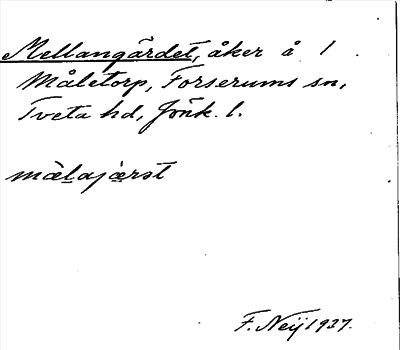 Mellangärdet, åker å 1
Måletorp, Forserums sn,
Tveta hd, Jönk. l.
mälajärst
F. Neij 1937.